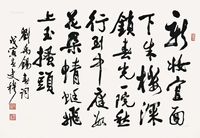 新妝宜面
下朱樓深
鎖春光一院愁
行到中庭數
花朵蜻蜓飛
上玉搔頭
劉禹錫春詞
戊寅